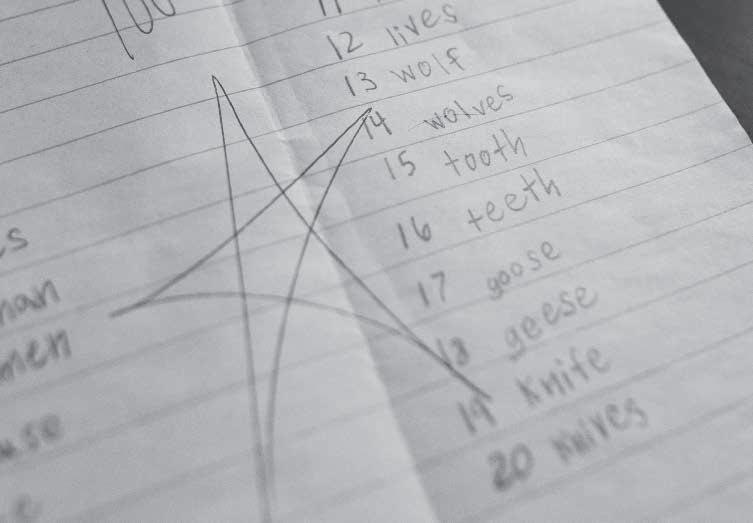 100
12 lives
13 wolf
14 wolves
15 tooth
16 teeth
17 goose
18 geese
19 knife
20 knives